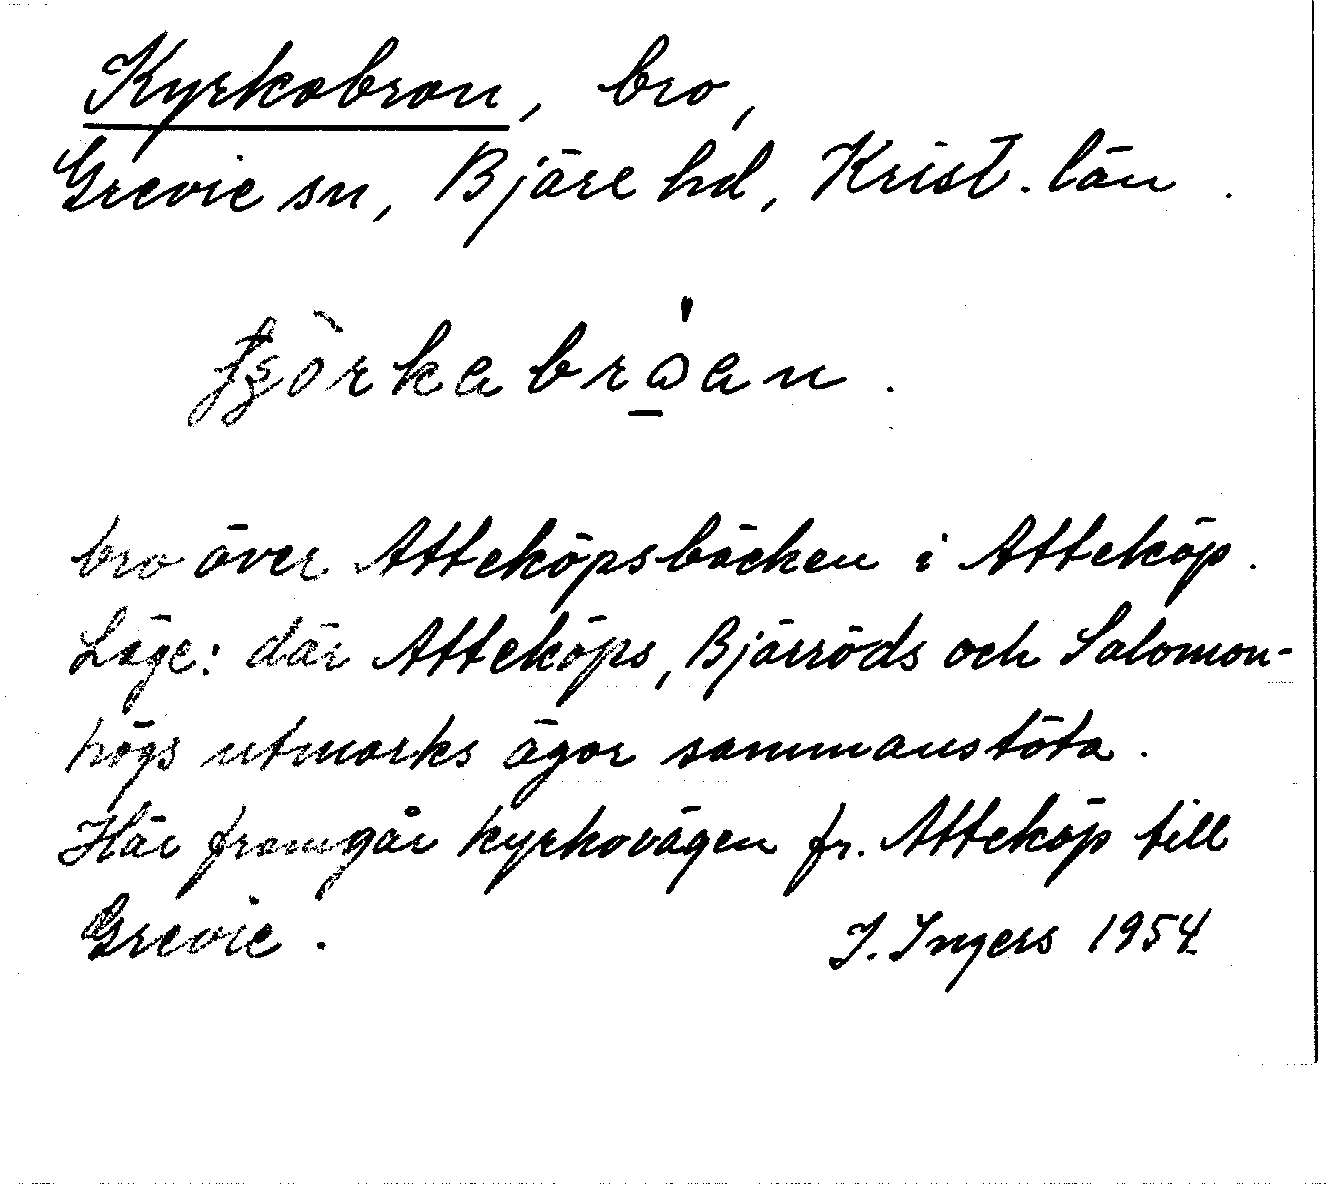 Kyrkobron, bro,
Grevie sn, Bjäre hd, Krist. län.
bro över Atteköpsbäcken i Atteköp.
Läge: där Atteköps, Bjärröds och Salomon-
högs utmarks ägor sammanstöta.
Här framgår kyrkovägen fr. Atteköp till
Grevie.
I. Ingers 1954